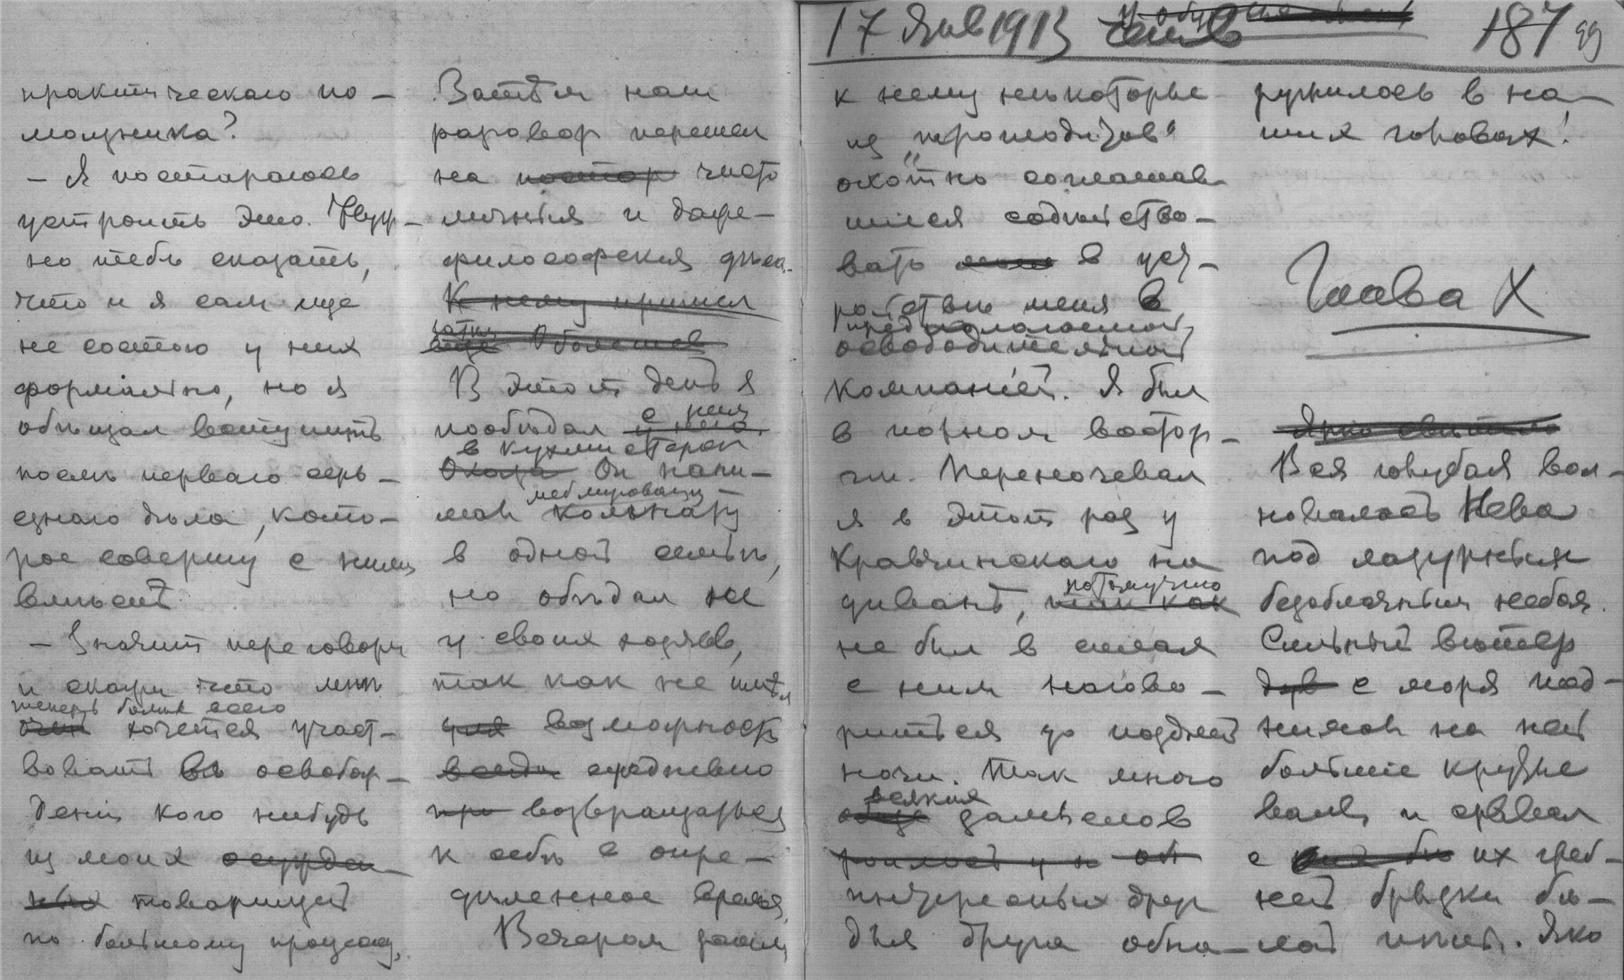 практическаго по-
мощника?
– Я постараюсь
устроить это. Нуж-
но тебѣ сказать,
что и я сам еще
не состою у них
формально, но я
обѣщал вступить
послѣ перваго серь-
езнаго дѣла, кото-
рое совершу с ними
вмѣстѣ.
– Значит переговори
и скажи что мнѣ
теперь болѣе всего
хочется участ-
вовать въ освобож-
деніи кого нибудь
из моих осужден-
ных товарищей
по большому процессу.
Затѣм наш
разговор перешел
на чисто
личныя и даже
философскія
К нему пришел
В этот день я
пообѣдал с ним
в кухмистерской
Он нани-
меблированную
мал комнату
в одной семьѣ,
но обѣдал не
у своих хозяев,
так как не имѣл
возможности
ежедневно
возвращаться
к себѣ в опре-
дѣленное время.
Вечером зашли
17 Янв 1913
187
к нему нѣкоторые
из „троглодитов“
охотно соглашав-
шіеся содѣйство-
вать в уст-
меня в
предполагаемой
освободительной
компаніей. Я был
в полном востор-
гѣ. Переночевал
я в этот раз у
Кравчинскаго на
диванѣ, потому что
так как
не был в силах
с ним нагово-
риться до поздней
ночи. Так много
всяких
замыслов
интересных друг
для друга обна-
ружилось в на-
ших головах!
Глава X
Ярко свѣтило
Вся голубая вол-
новалась Нева
под лазурным
безоблачным небом.
Сильный вѣтер
с моря под-
нимал на ней
большіе крупные
валы и срывал
с их греб-
ней брызги бѣ-
лой пѣны. Ярко